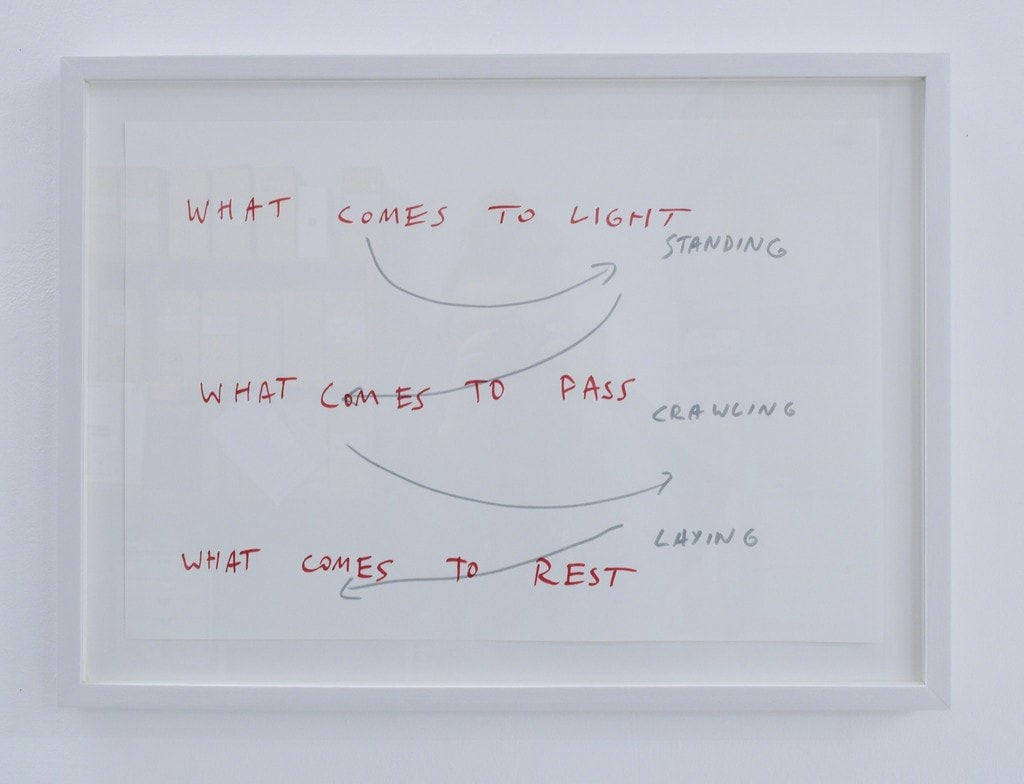 WHAT COMES TO LIGHT
STANDING
WHAT COMES TO PASS
CRAWLING
LAYING
WHAT COMES TO REST